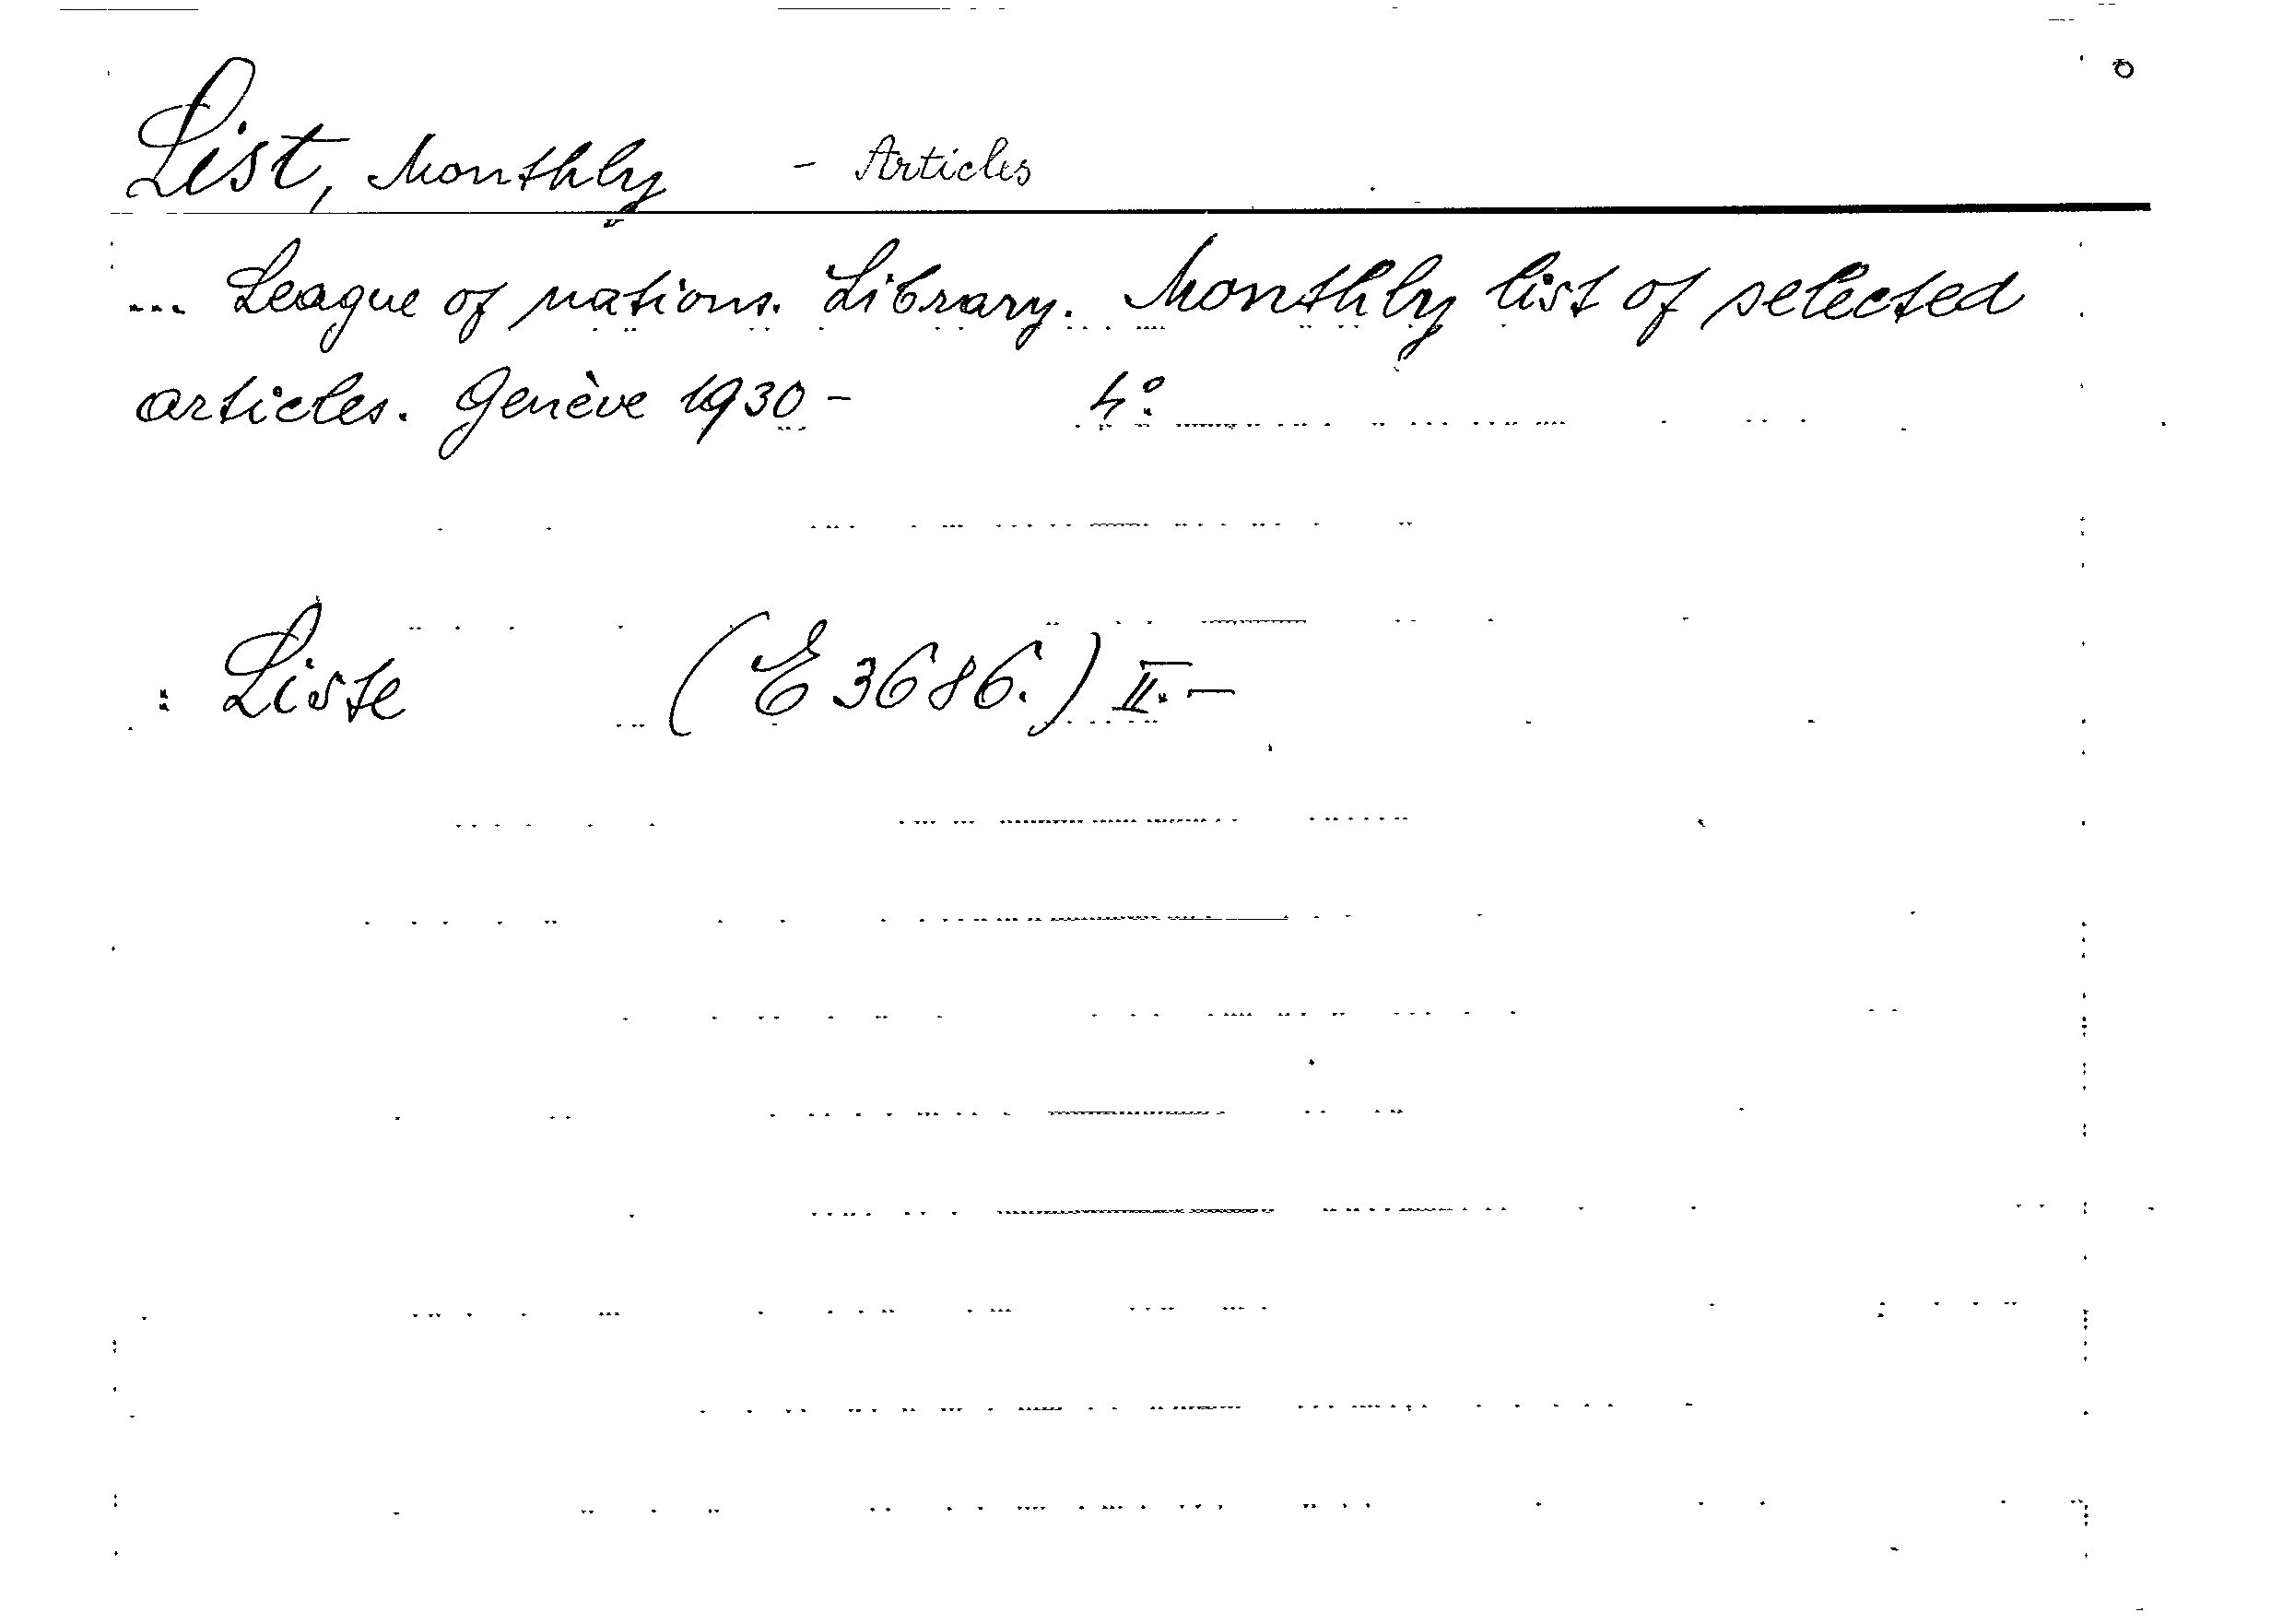 List, Monthly - Articles
... League of nations. Library. Monthly list of selected
articles. Genève 1930 - 4°.
: Liste (E 3686.) II.-